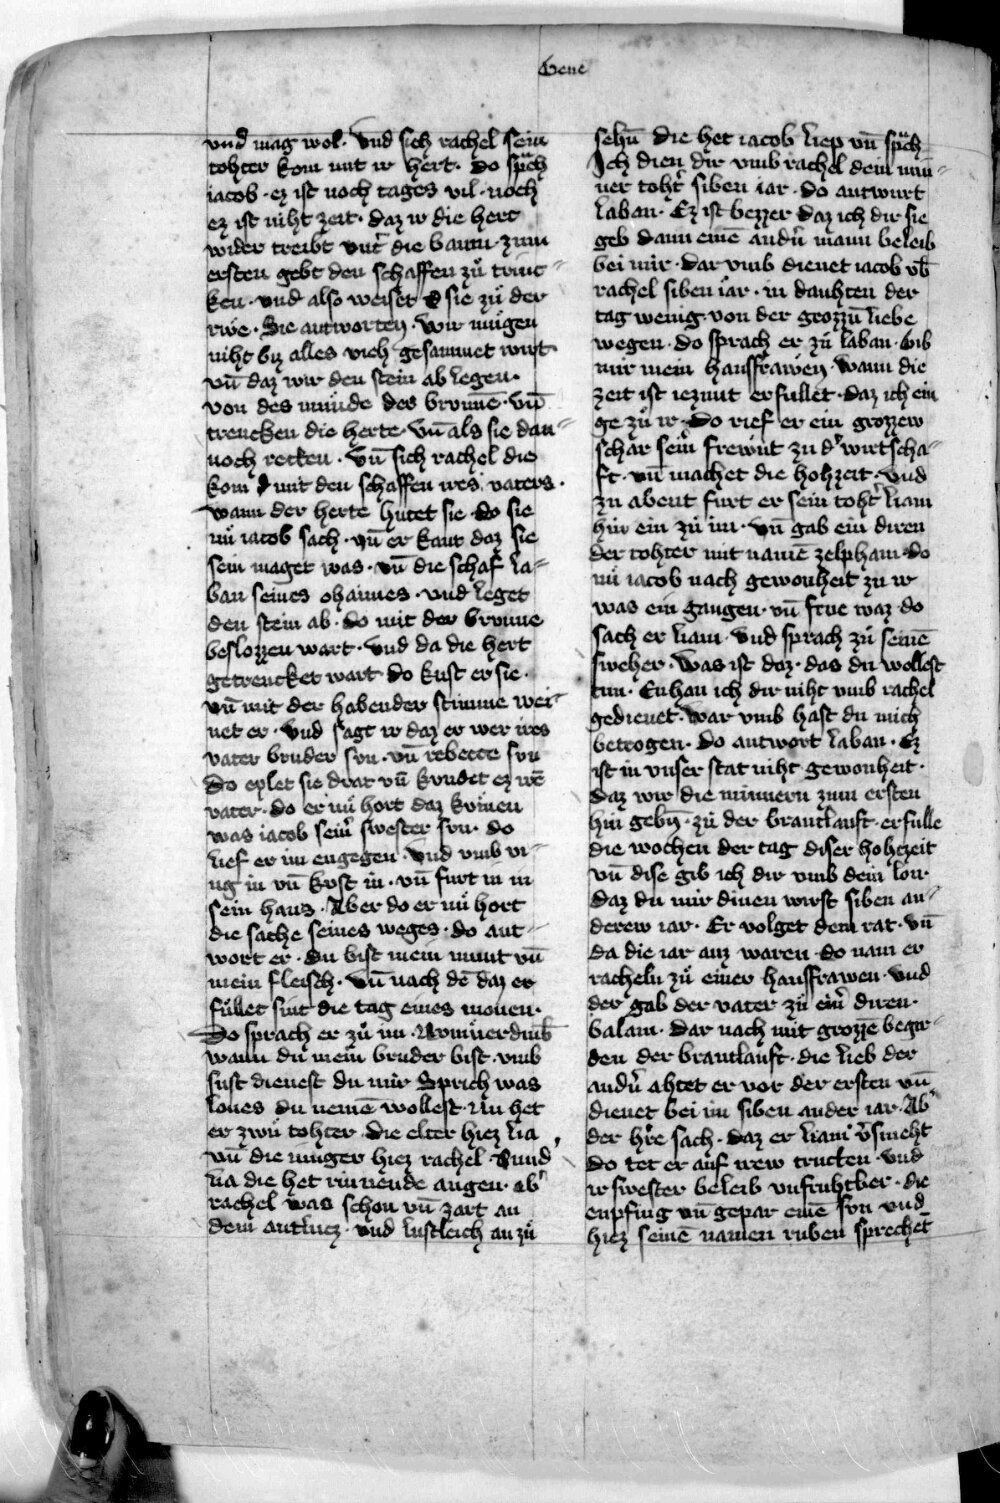 Gene
vnd mag wol · Vnd sich rachel sein
tohter kom mit ir hert · do sprach
iacob · ez ist noch tages vil · noch
ez ist niht zeit · daz ir die hert
wider treibt vnt̉ die baum · zum
ersten gebt den schaffen zuͦ trinc⸗
ken · vnd also weiset sie zuͦ der
rwe · Sie antworten · wir muͤgen
niht biz alles vieh gesamnet wirt
vn̄ daz wir den stein ab legen ·
von des munde des brunnē · vn̄
trencken die herte · vn̄ als sie dan⸗
noch retten · vn̄ sich rachel die
kom mit den schaffen ires vaters ·
wann der herte hutet sie · do sie
nuͤ iacob sach · vn̄ er kant daz sie
sein maget was · vn̄ die schaf la⸗
ban seines ohaimes · vnd leget
den stein ab · do mit der brunne
beslozzen wart · vnd da die hert
getrencket wart do kust er sie ·
vn̄ mit der habender stimme wei⸗
net er · vnd sagt ir daz er wer irs
vater bruder sun · vn̄ rebecce sun
Do eylet sie drat vn̄ kundet ez irē
vater · do er nuͤ hort daz kuͤmen
was iacob sein̉ swester sun · do
lief er im engegen · vnd vmb vi⸗
ng in vn̄ kust in · vn̄ furt in in
sein haus · Aber do er nu hort
die sache seines weges · do ant⸗
wort er · du bist mein munt vn̄
mein fleisch · vn̄ nach dē daz er
fuͤllet sint die tag eines monen ·
Do sprach er zuͦ im ·
wann du mein bruder bist · vmb
sust dienest du mir Sprich was
lones du nemē wollest · Nu het
er zwu tohter · die elter hiez lia
vn̄ die iunger hiez rachel · Sund̉
lia die het rinnende augen · ab̉
rachel was schon vn̄ zart an
dem antlutz · vnd lustleich an zuͦ
sehn̄ die het iacob liep vn̄ sprach
Ich dien dir vmb rachel dein min⸗
ner toht̉ siben iar · do antwurt
laban · Ez ist bezzer daz ich dir sie
geb dann einē andn̉ mann beleib
bei mir · dar vmb dienet iacob vb̄
rachel siben iar · in dauhten der
tag wenig von der grozzn̄ liebe
wegen · do sprach er zuͦ laban · Gib
mir mein hausfrawen · wann die
zeit ist iezunt erfullet · daz ich ein
ge zuͦ ir · Do rief er ein grozzew
schar sein̉ frewnt zu d̉ wirtscha⸗
ft · vn̄ machet die hohzeit · vnd
zu abent furt er sein toht̉ liam
hin ein zuͦ im · vn̄ gab ein diren
der tohter mit namē zelpham · do
nuͤ iacob nach gewonheit zu ir
was ein gangen · vn̄ frue waz do
sach er liam · vnd sprach zuͦ seinē
sweher · Was ist daz · das du wollest
tun · Enhan ich dir niht vmb rachel
gedienet · war vmb hast du mich
betrogen · do antwort laban · Ez
ist in vnser stat niht gewonheit ·
daz wir die minnern zum ersten
hin gebn̄ · zu der brautlauft · erfulle
die wochen der tag diser hohtzeit
vn̄ dise gib ich dir vmb dein lon ·
daz du mir dinen wirst siben an⸗
derew iar · Er volget dem rat · vn̄
da die iar auz waren · do nam er
racheln zuͦ einer hausfrawen · vnd
der gab der vater zuͦ ein̉ diren ·
balam · dar nach mit grozzē begir⸗
den der brautlauft · die lieb der
andn̉ ahtet er vor der ersten vn̄
dienet bei im siben ander iar · Ab̉
der hr̉e sach · daz er liam v̉smeht
do tet er auf irew trucken · vnd
ir swester beleib vnfruhtber · die
enpfing vn̄ gepar einē sun vnd
hiez seinē namen ruben sprechet